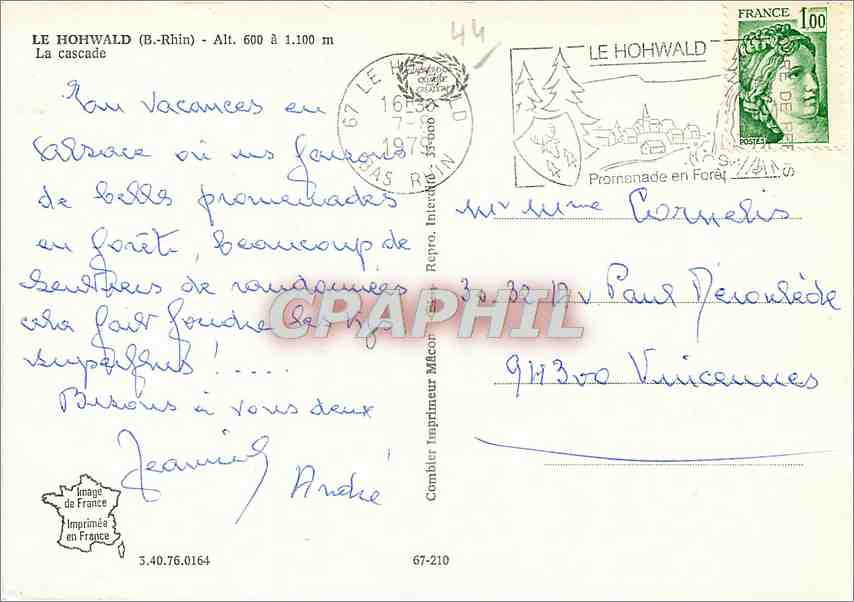 LE HOHWALD (B.-Rhin) - Alt. 600 à 1.100 m
La cascade
44
67 LE HOHWALD
16H30
7-8
197
BAS RHIN
LE HOHWALD
Promenade en Forêt
FRANCE 1,00
POSTES
vacances en
alsace où ns faisons
de belles promenades
en forêts, beaucoup de
sentiers de randonnées
cela fait fondre les kgs
superflus !.....
Bisous à vous deux
André
Mr Mme Cornelis
30.32 Av Paul Déroulède
94300 Vincennes
Combier Imprimeur Mâcon Repro. Interdite 35 000
CPARHIL
Image
de France
Imprimée
en France
3.40.76.0164
67-210